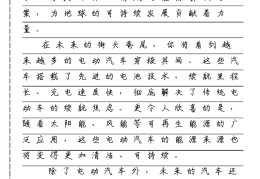 案，为地球的可持续发展贡献着力
量。
在未来的街头巷尾，你将看到越
来越多的电动汽车穿梭其间。这些汽
车搭载了先进的电池技术，续航里程
长，充电速度快，彻底解决了传统电
动车的续航焦虑。更令人欣喜的是，
随着太阳能、风能等可再生能源的广
泛应用，这些电动汽车的能源来源也
将变得更加清洁、可持续。
除了电动汽车外，未来的汽车还